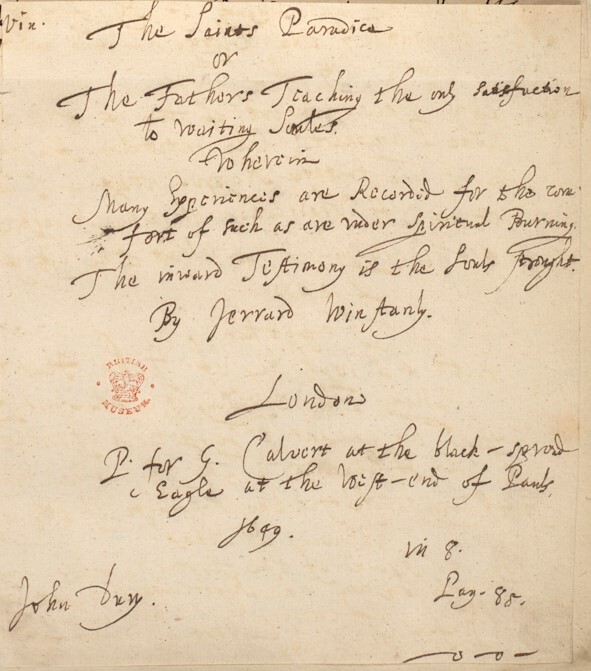 Vin.
The Saints Paradice
or
The Fathers Teaching the only satisfaction
to waiting Soules.
Wherein
Many Experiences are Recorded for the com-
fort of such as are under Spiritual Burning.
The inward Testimony is the Souls strenght.
By Jerrard Winstanly.
BRITISH MUSEUM
London
P. for G. Calvert at the black-spred
Eagle at the West-end of Pauls,
1649.
in 8.
Pag. 88.
John